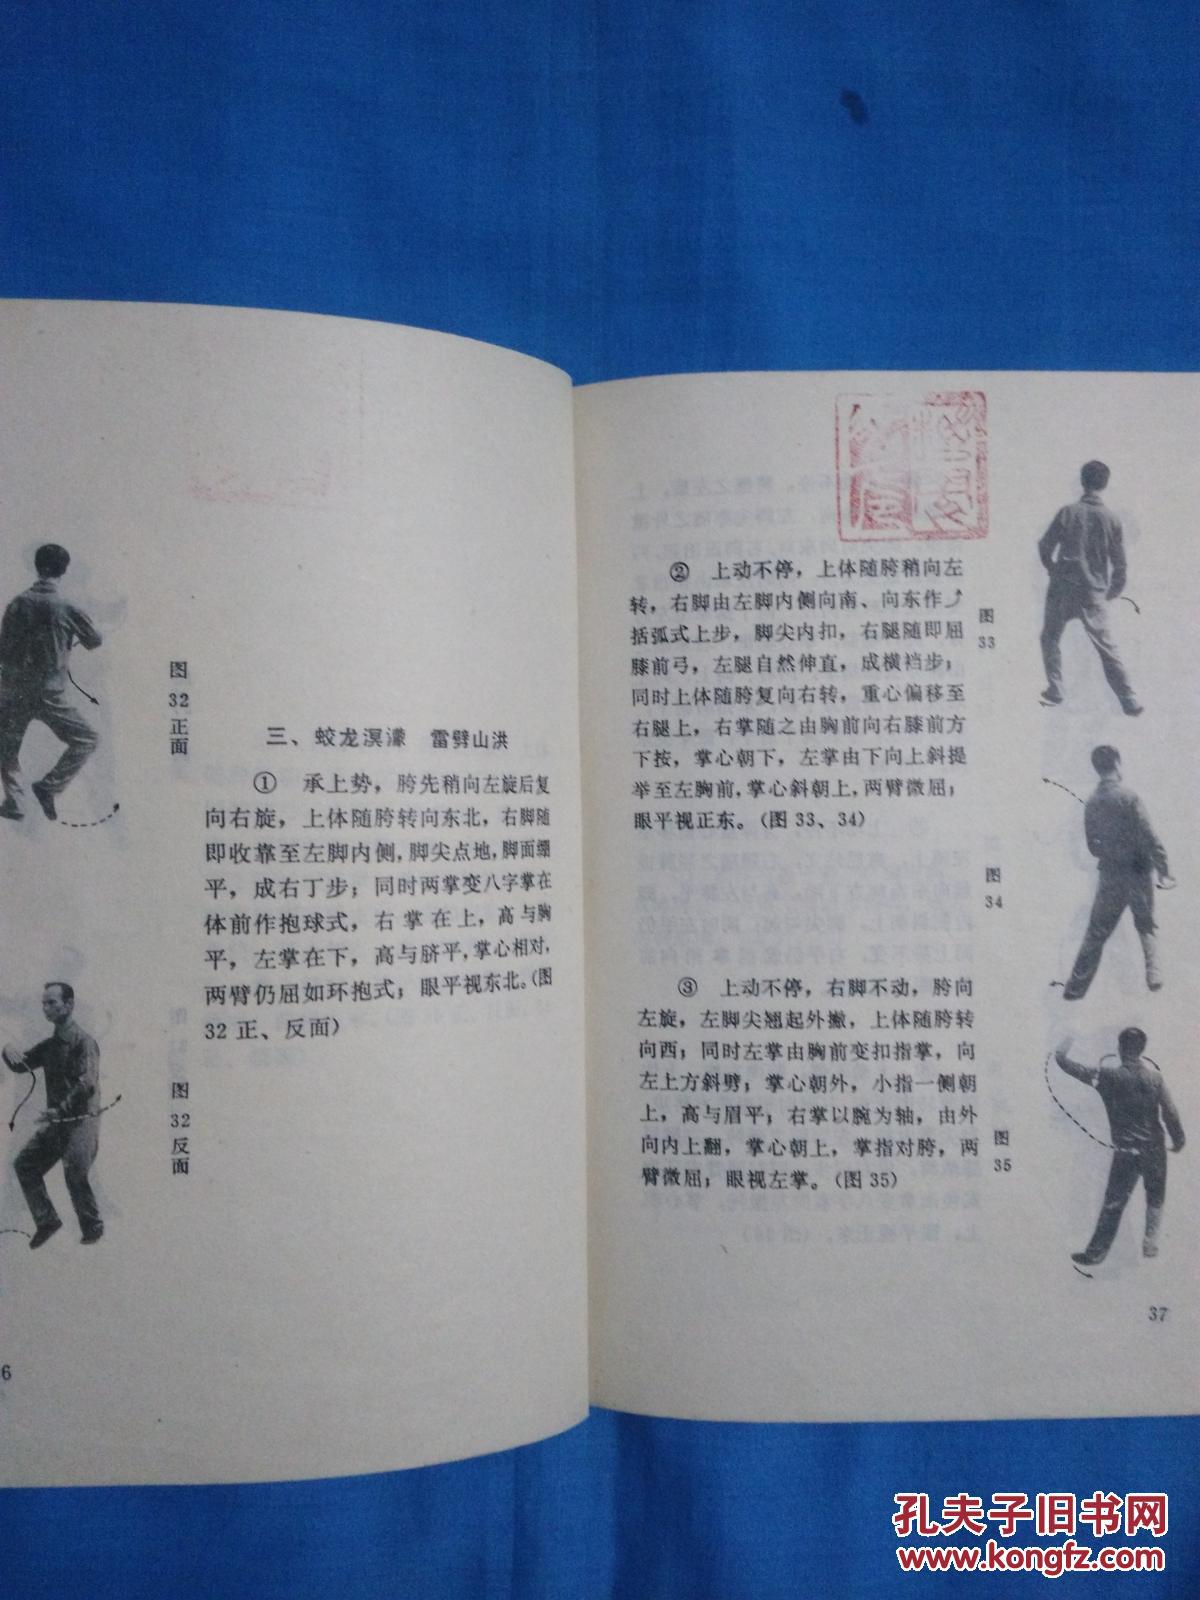 图
32
正
面
三、蛟龙溟濛　雷劈山洪
①　承上势，胯先稍向左旋后复
向右旋，上体随胯转向东北，右脚随
即收靠至左脚内侧，脚尖点地，脚面绷
平，成右丁步；同时两掌变八字掌在
体前作抱球式，右掌在上，高与胸
平，左掌在下，高与脐平，掌心相对，
两臂仍屈如环抱式；眼平视东北。（图
32 正、反面）
图
32
反
面
6
②　上动不停，上体随胯稍向左
转，右脚由左脚内侧向南、向东作⤴
括弧式上步，脚尖内扣，右腿随即屈
膝前弓，左腿自然伸直，成横裆步；
同时上体随胯复向右转，重心偏移至
右腿上，右掌随之由胸前向右膝前方
下按，掌心朝下，左掌由下向上斜提
举至左胸前，掌心斜朝上，两臂微屈；
眼平视正东。（图 33、34）
图
33
图
34
③　上动不停，右脚不动，胯向
左旋，左脚尖翘起外撇，上体随胯转
向西；同时左掌由胸前变扣指掌，向
左上方斜劈；掌心朝外，小指一侧朝
上，高与眉平；右掌以腕为轴，由外
向内上翻，掌心朝上，掌指对胯，两
臂微屈；眼视左掌。（图 35）
图
35
37
孔夫子旧书网
www.kongfz.com